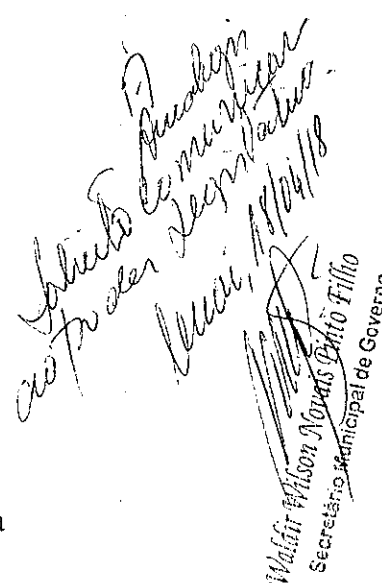 À
Solicito comunicar
ao Poder Legislativo.
Unaí, 18/04/18
Waldir Wilson Novais Pinto Filho
Secretário Municipal de Governo
a